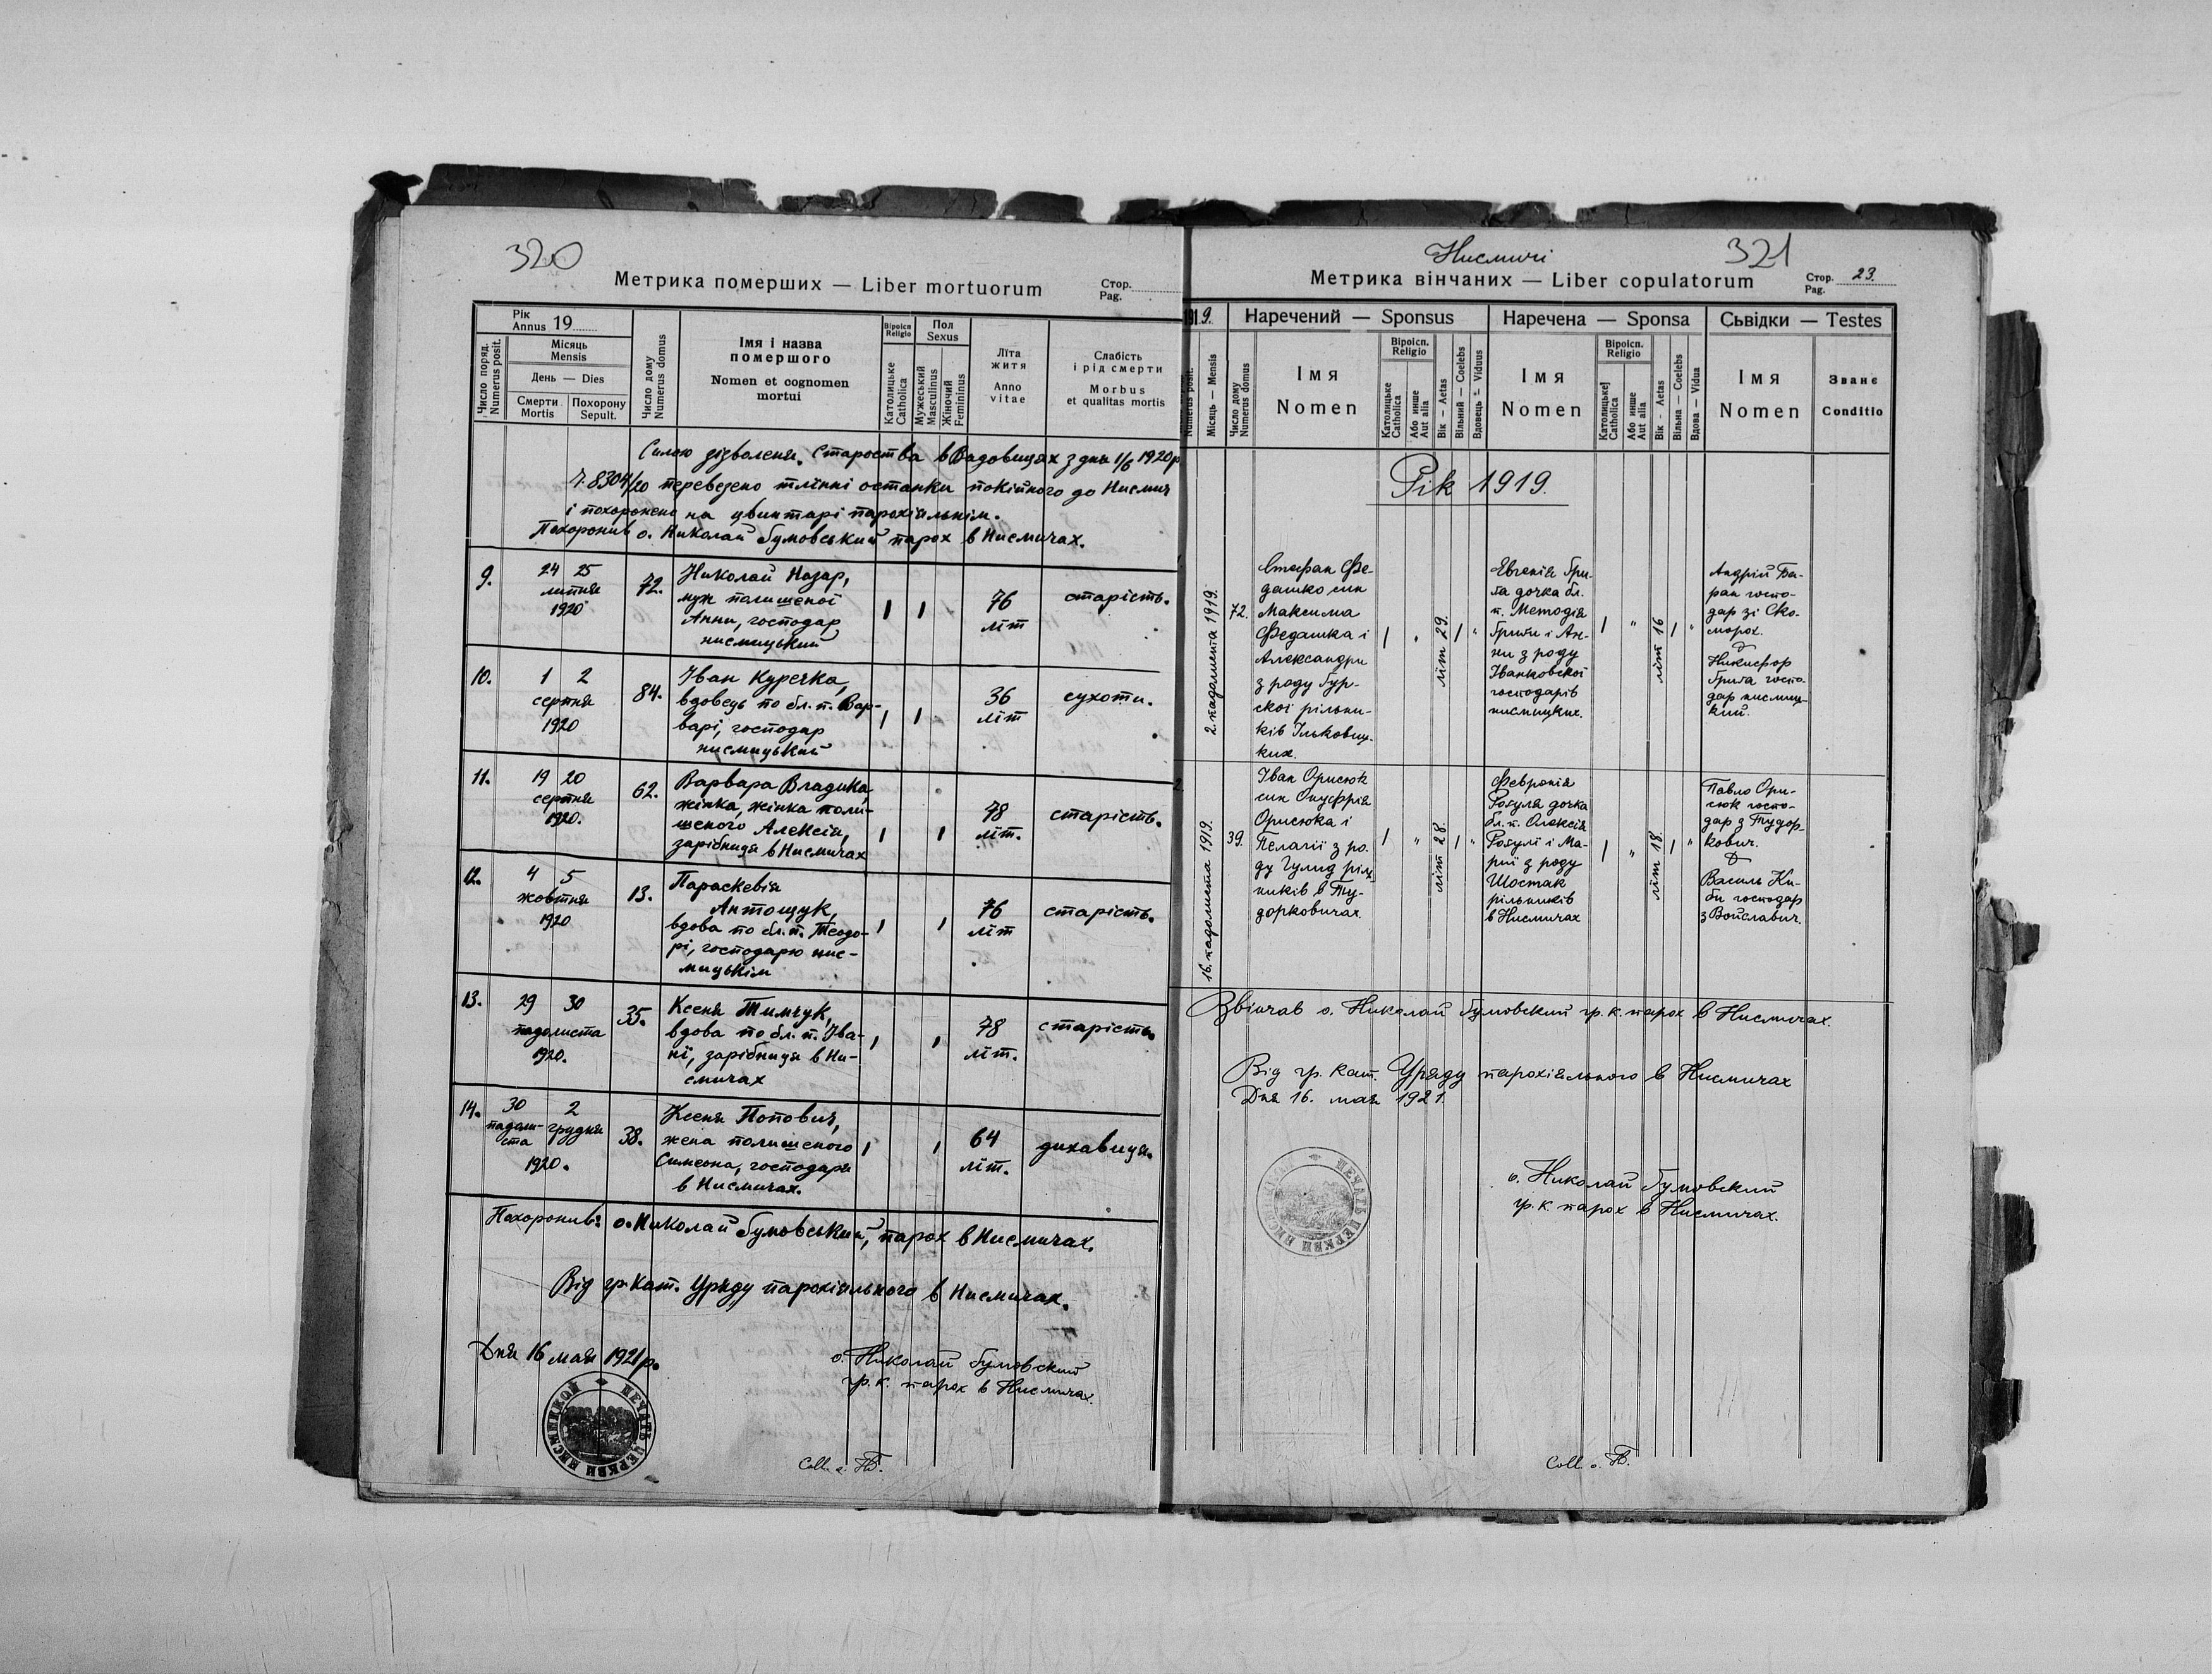 320
Метрика померших — Liber mortuorum
Стор.
Pag.
Рік
Annus 19
Число поряд.
Numerus posit.
Місяць
Mensis
День — Dies
Смерти
Mortis
Похорону
Sepult.
Число дому
Numerus domus
Імя і назва
помершого
Nomen et cognomen
mortui
Віроісп.
Religio
Католицьке
Catholica
Пол
Sexus
Мужеський
Masculinus
Жіночий
Femininus
Лїта
житя
Anno
vitae
Слабість
і рід смерти
Morbus
et qualitas mortis
Силою дізволеня. Староства в Вадовицях з дня 1/6 1920р
Ч. 8304/20 перевезено тлінні останки покійного до Нисмич
і похоронено на цвинтарі парохіяльнім.
Похоронив о. Николай Бумовський парох в Нисмичах.
9.
24 25
липня
1920
72.
Николай Назар,
муж полишеної
Анни, господар
нисмицький
76
літ
старість.
10.
1 2
серпня
1920
84.
Іван Куречка,
вдовець по бл. п. Вар-
варі, господар
нисмицький
36
літ
сухоти.
11.
19 20
серпня
1920.
62.
Варвара Владика,
жінка, жінка поли-
шеного Алексія,
зарібниця в Нисмичах
78
літ.
старість.
12.
4 5
жовтня
1920
13.
Параскевія
Антощук,
вдова по бл. п. Теодо-
рі, господарю нис-
мицькім
76
літ
старість.
13.
29 30
падолиста
1920.
35.
Ксеня Тимчук,
вдова по бл. п. Іва-
ні, зарібниця в Ни-
смичах
78
літ.
старість.
14.
30 2
падоли- грудня
ста
1920.
38.
Ксеня Попович,
жена полишеного
Симеона, господаря
в Нисмичах.
64
літ.
дихавиця.
Похоронив: о. Николай Бумовський, парох в Нисмичах.
Від гр. кат. Уряду парохіяльного в Нисмичах.
Дня 16 мая 1921 р.
о. Николай Бумовский
гр. к. парох в Нисмичах.
ПЕЧАТЬ ЦЕРКВИ НИСМИЦКОЙ
Нисмичі
321
Метрика вінчаних — Liber copulatorum
Стор. 23.
Pag.
1919.
Numerus posit.
Місяць — Mensis
Число дому
Numerus domus
Наречений — Sponsus
Імя
Nomen
Віроісп.
Religio
Католицьке
Catholica
Або инше
Aut alia
Вік — Aetas
Вільний — Coelebs
Вдовець — Viduus
Наречена — Sponsa
Імя
Nomen
Віроісп.
Religio
Католицьке
Catholica
Або инше
Aut alia
Вік — Aetas
Вільна — Coelebs
Вдова — Vidua
Сьвідки — Testes
Імя
Nomen
Званє
Conditio
Рік 1919.
2. падолиста 1919.
72.
Стефан Фе-
дашко син
Максима
Федашка і
Александри
з роду Бур-
скої рільни-
ків Ільковиц-
ких.
літ 29.
Евгенія Гри-
та дочка бл.
п. Методія
Грити і Ан-
ни з роду
Іванковскої
господарів
нисмицких.
літ 16
Андрій Ба-
ран госпо-
дар зі Ско-
морох.
Никифор
Грита госпо-
дар нисмиц-
кий.
2.
16. падолиста 1919.
39.
Іван Орисюк
син Онуфрія
Орисюка і
Пелагії з ро-
ду Гулид ріль-
ників в Ту-
дорковичах
літ 28.
Февронія
Рогуля дочка
бл. п. Олексія
Рогулі і Ма-
рії з роду
Шостак
рільників
в Нисмичах
літ 18.
Павло Ори-
сюк госпо-
дар з Тудор-
кович.
Василь Ки-
би господар
з Войславич.
Звінчав о. Николай Бумовский гр. к. парох в Нисмичах.
Від гр. кат. Уряду парохіяльного в Нисмичах
Дня 16. мая 1921.
о. Николай Бумовский
гр. к. парох в Нисмичах.